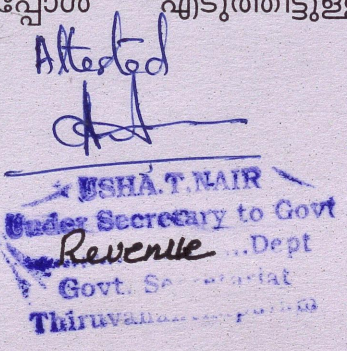 എടുത്തിട്ടുള്ള
Attested
USHA.T.NAIR
Under Secretary to Govt
Revenue ...Dept
Govt. Secretariat
Thiruvananthapuram